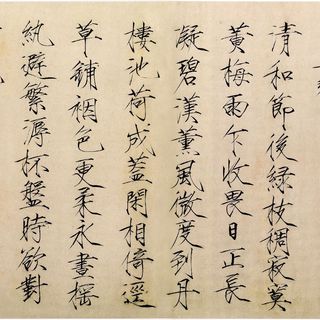 清和節後綠枝稠寂寞
黃梅雨乍收畏日正長
凝碧漢薰風微度到丹
樓池荷成蓋閑相倚逕
草鋪裀色更柔永晝搖
紈避繁溽杯盤時欲對